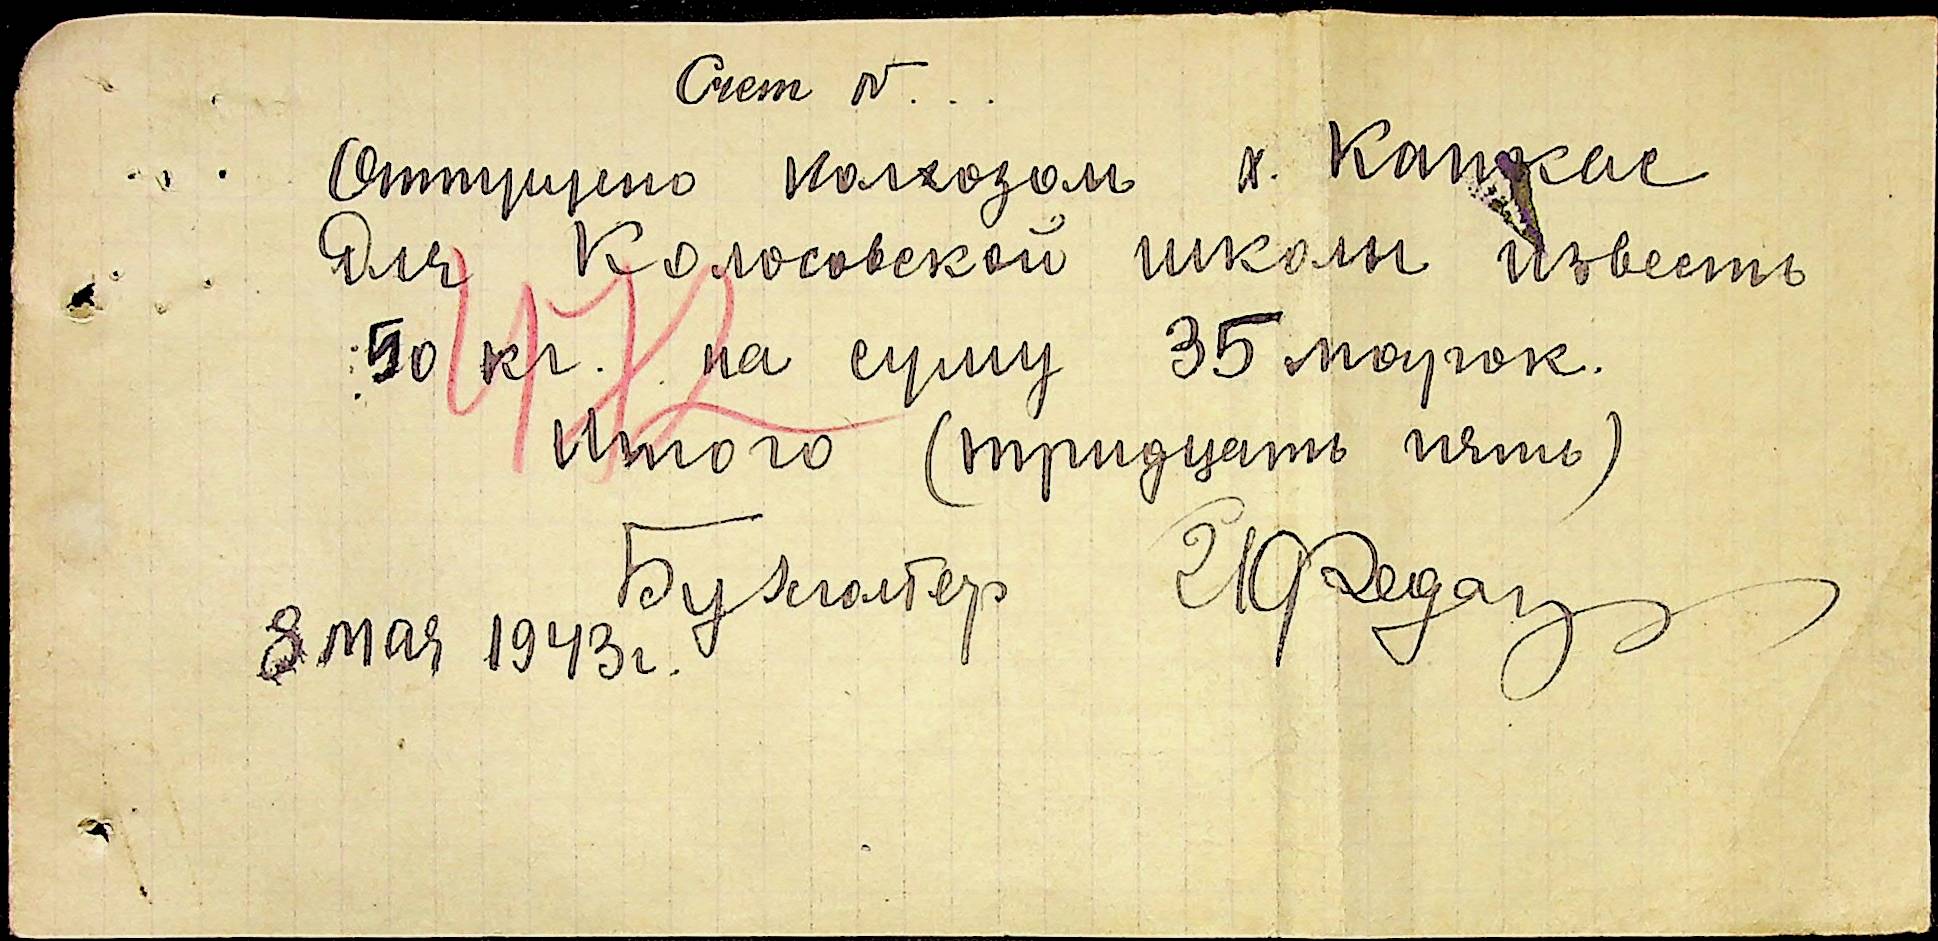 Счет №...
Отпущено колхозом х. Капкас
Для Колосовской школы известь
50 кг. на суму 35 марок.
472
Итого (тридцать пять)
Бухгалтер
8 мая 1943г.